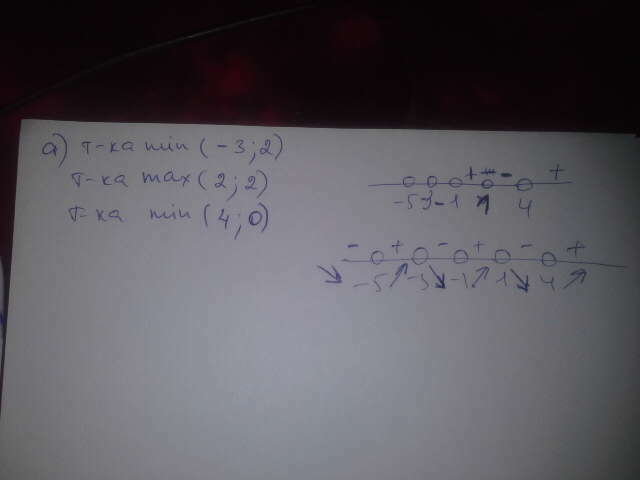 а) т-ка min (-3; 2)
т-ка max (2; 2)
т-ка min (4; 0)
+ - +
-5 -1 1 4
- + - + - +
-5 -3 -1 1 4